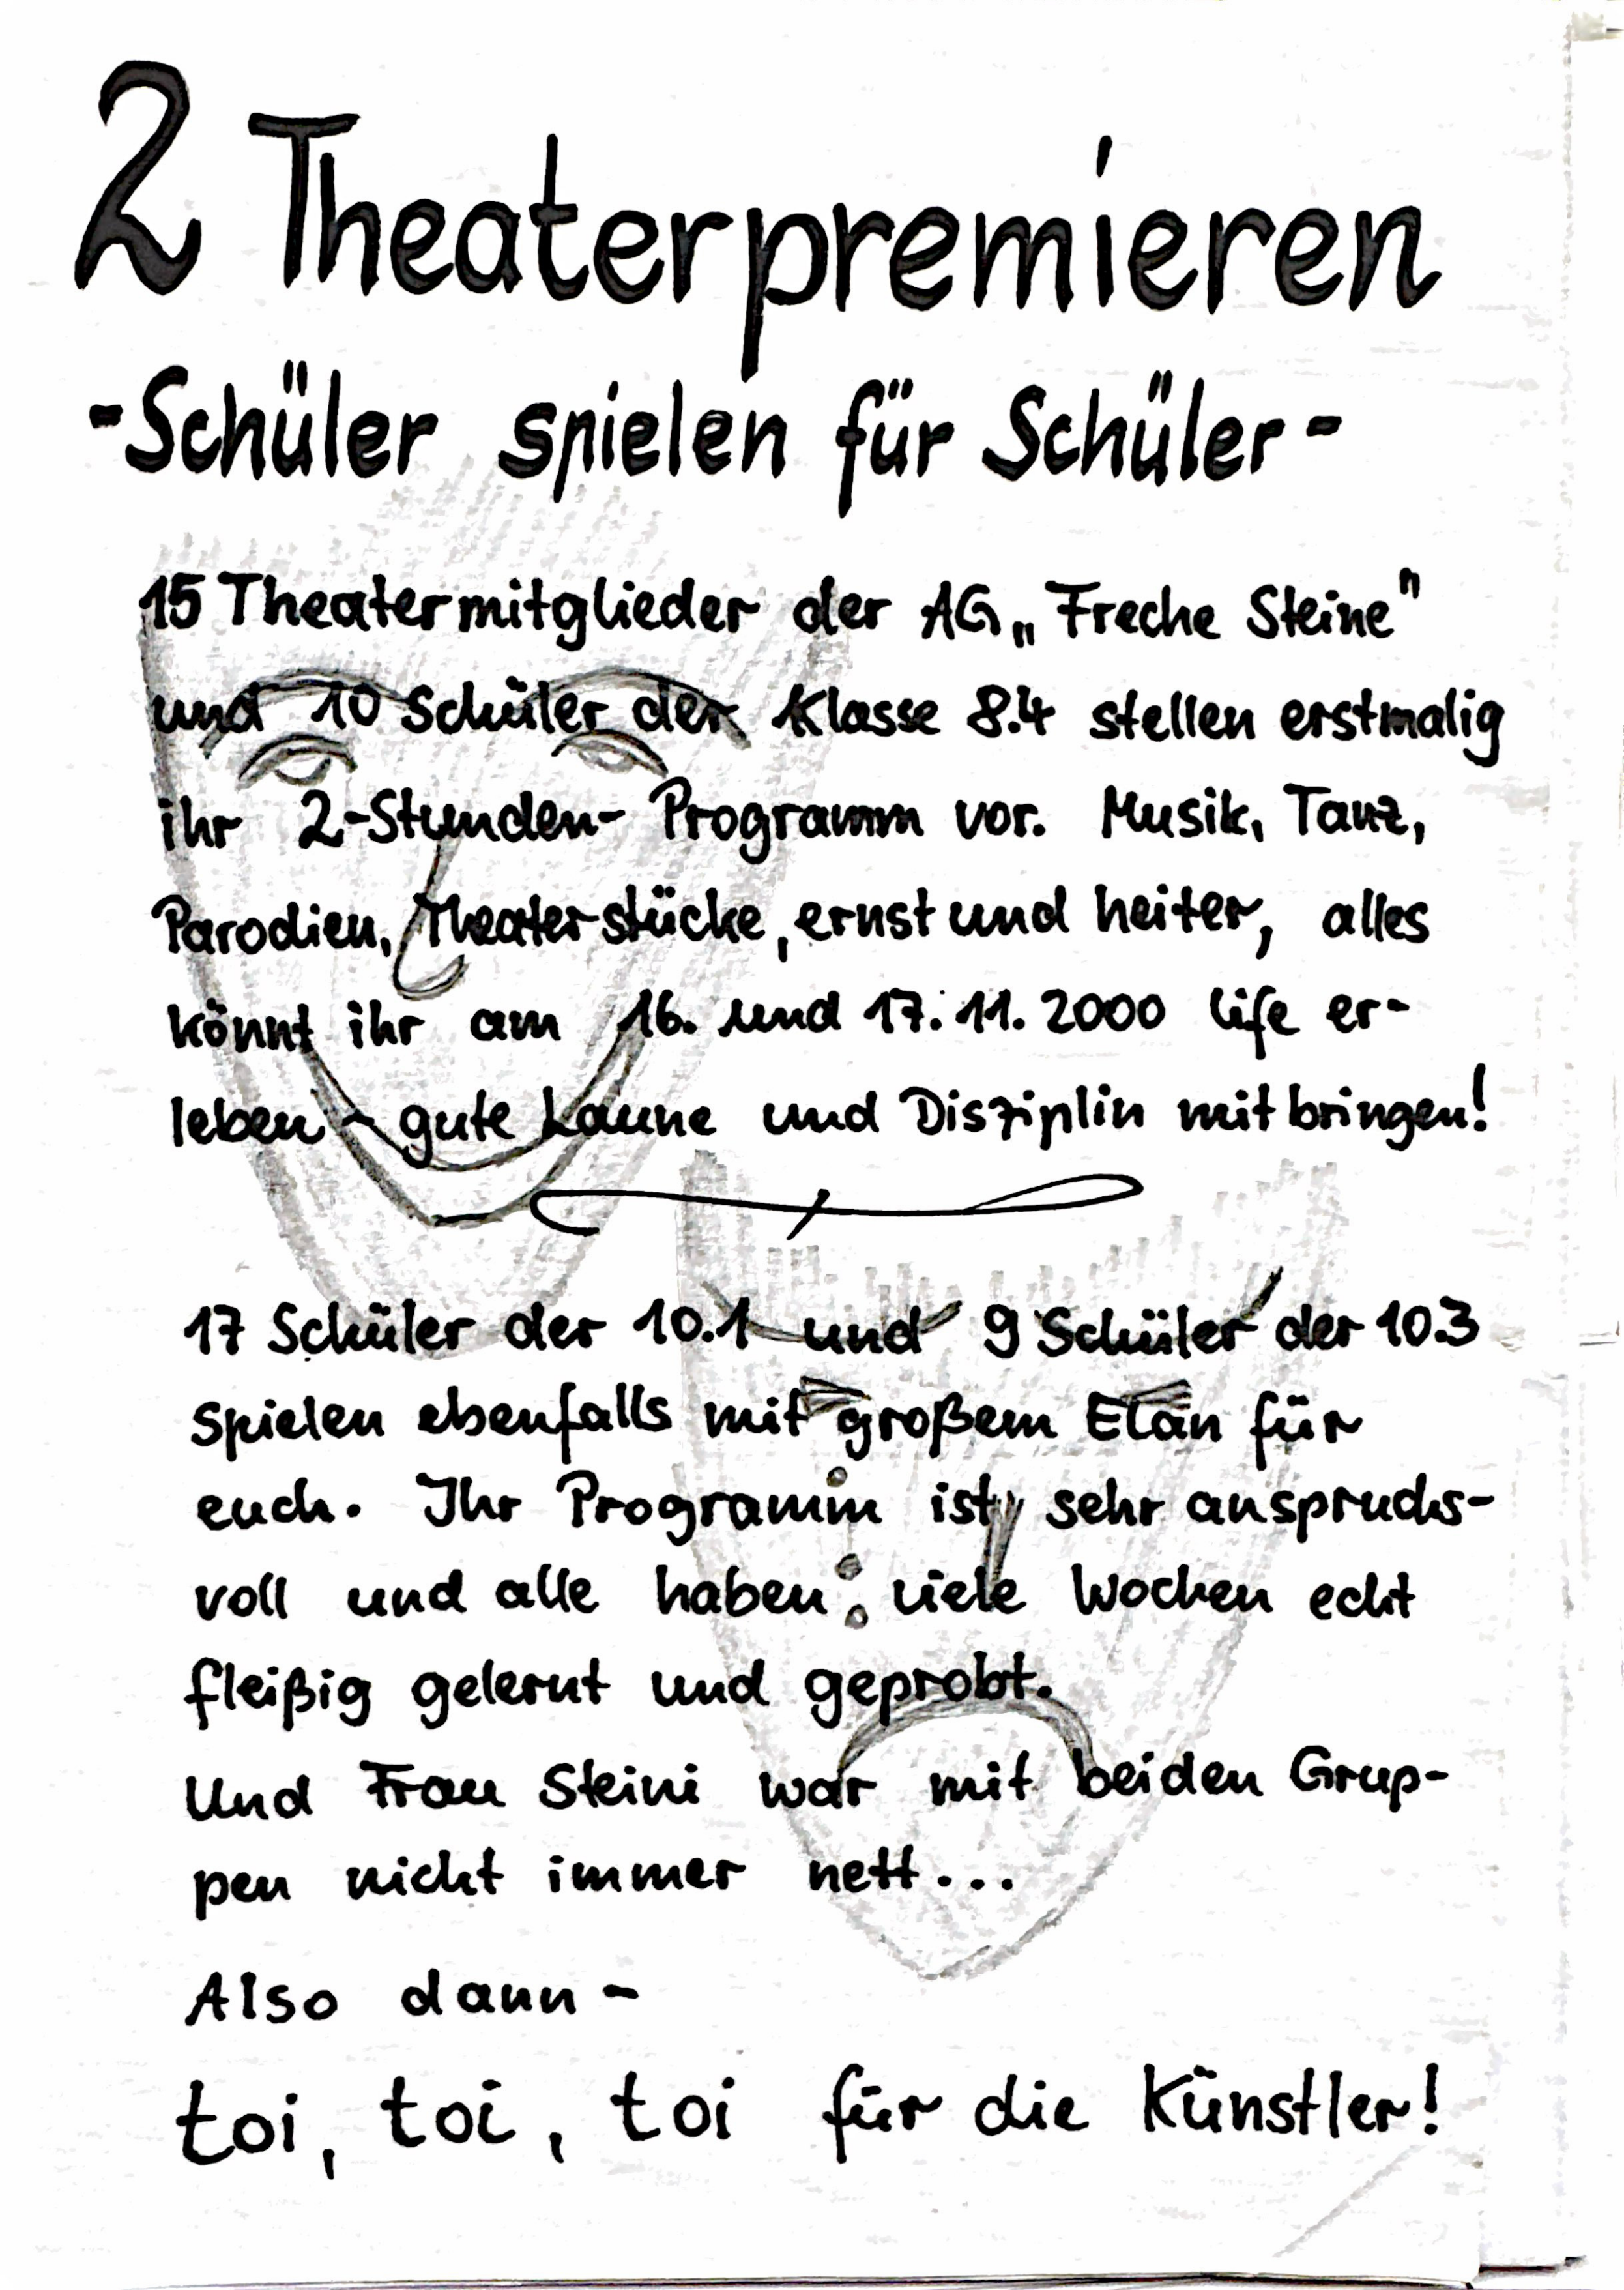 2 Theaterpremieren
-Schüler spielen für Schüler-
15 Theatermitglieder der AG „Freche Steine"
und 10 Schüler der Klasse 8.4 stellen erstmalig
ihr 2-Stunden-Programm vor. Musik, Tanz,
Parodien, Theaterstücke, ernst und heiter, alles
könnt ihr am 16. und 17.11.2000 life er-
leben - gute Laune und Disziplin mitbringen!
17 Schüler der 10.1 und 9 Schüler der 10.3
spielen ebenfalls mit großem Elan für
euch. Ihr Programm ist sehr anspruchs-
voll und alle haben viele Wochen echt
fleißig gelernt und geprobt.
Und Frau Steini war mit beiden Grup-
pen nicht immer nett...
Also dann -
toi, toi, toi für die Künstler!